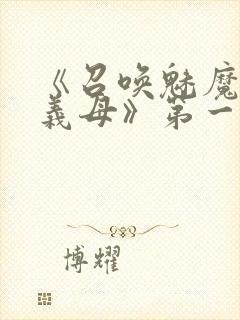 《召唤魅魔
義母》第一
博耀